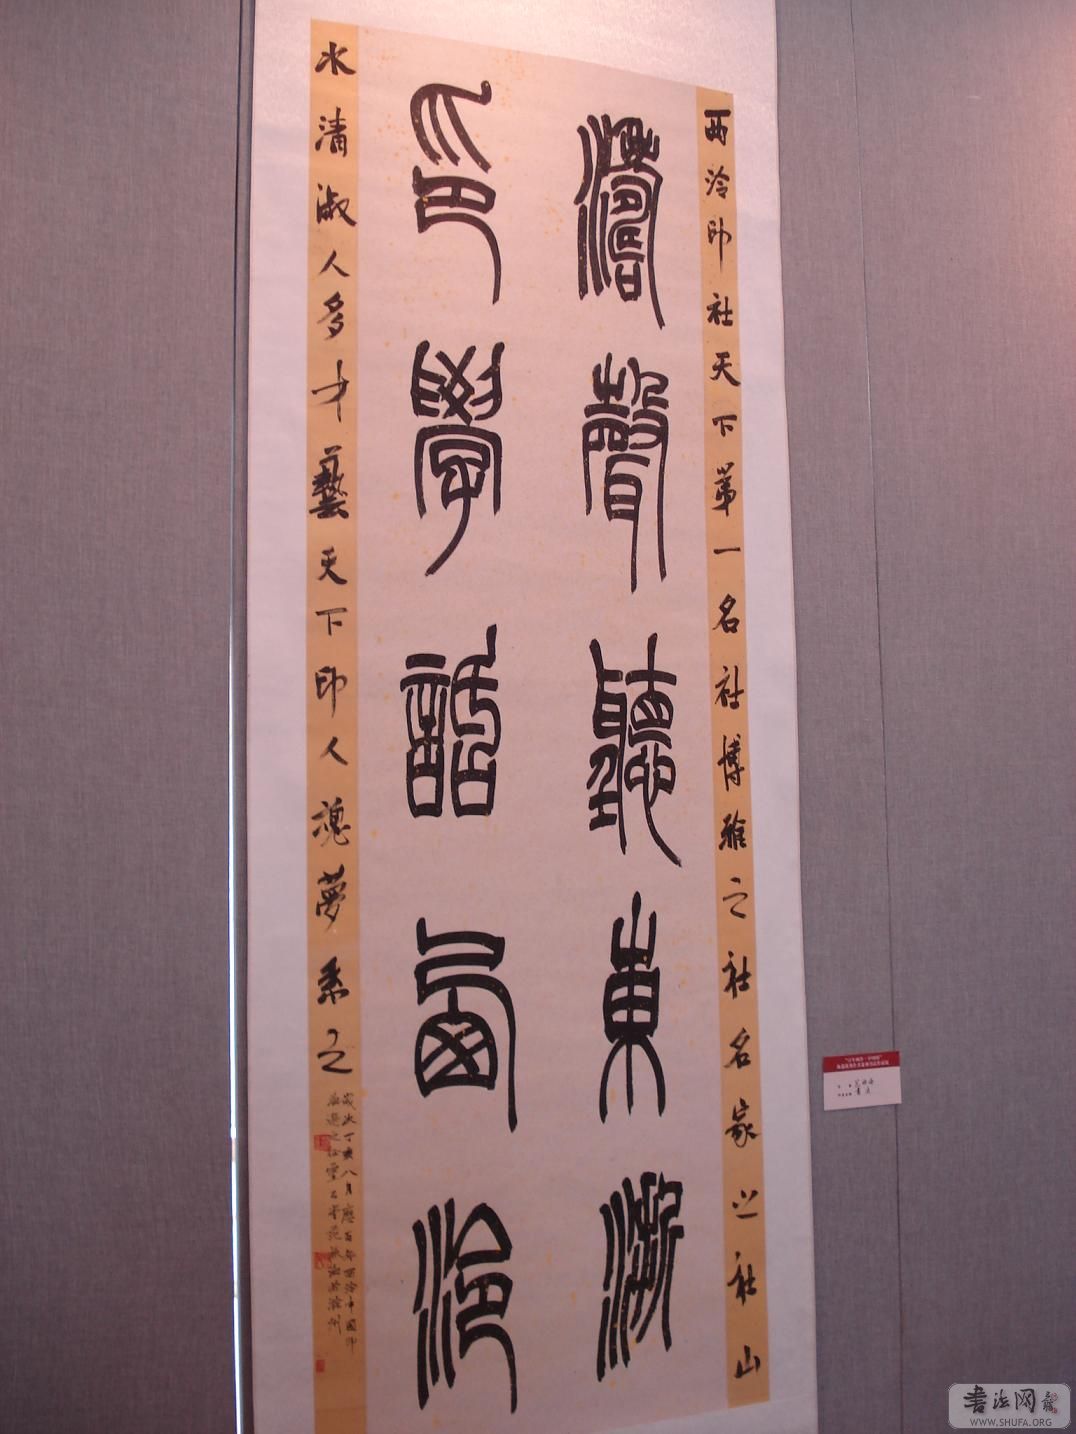 西泠印社天下第一名社博雅之社名家之社山
濤聲聽東浙
印學話西泠
水清淑人多才藝天下印人魂夢系之
歲次丁亥八月應百年西泠中國印
書法网
WWW.SHUFA.ORG